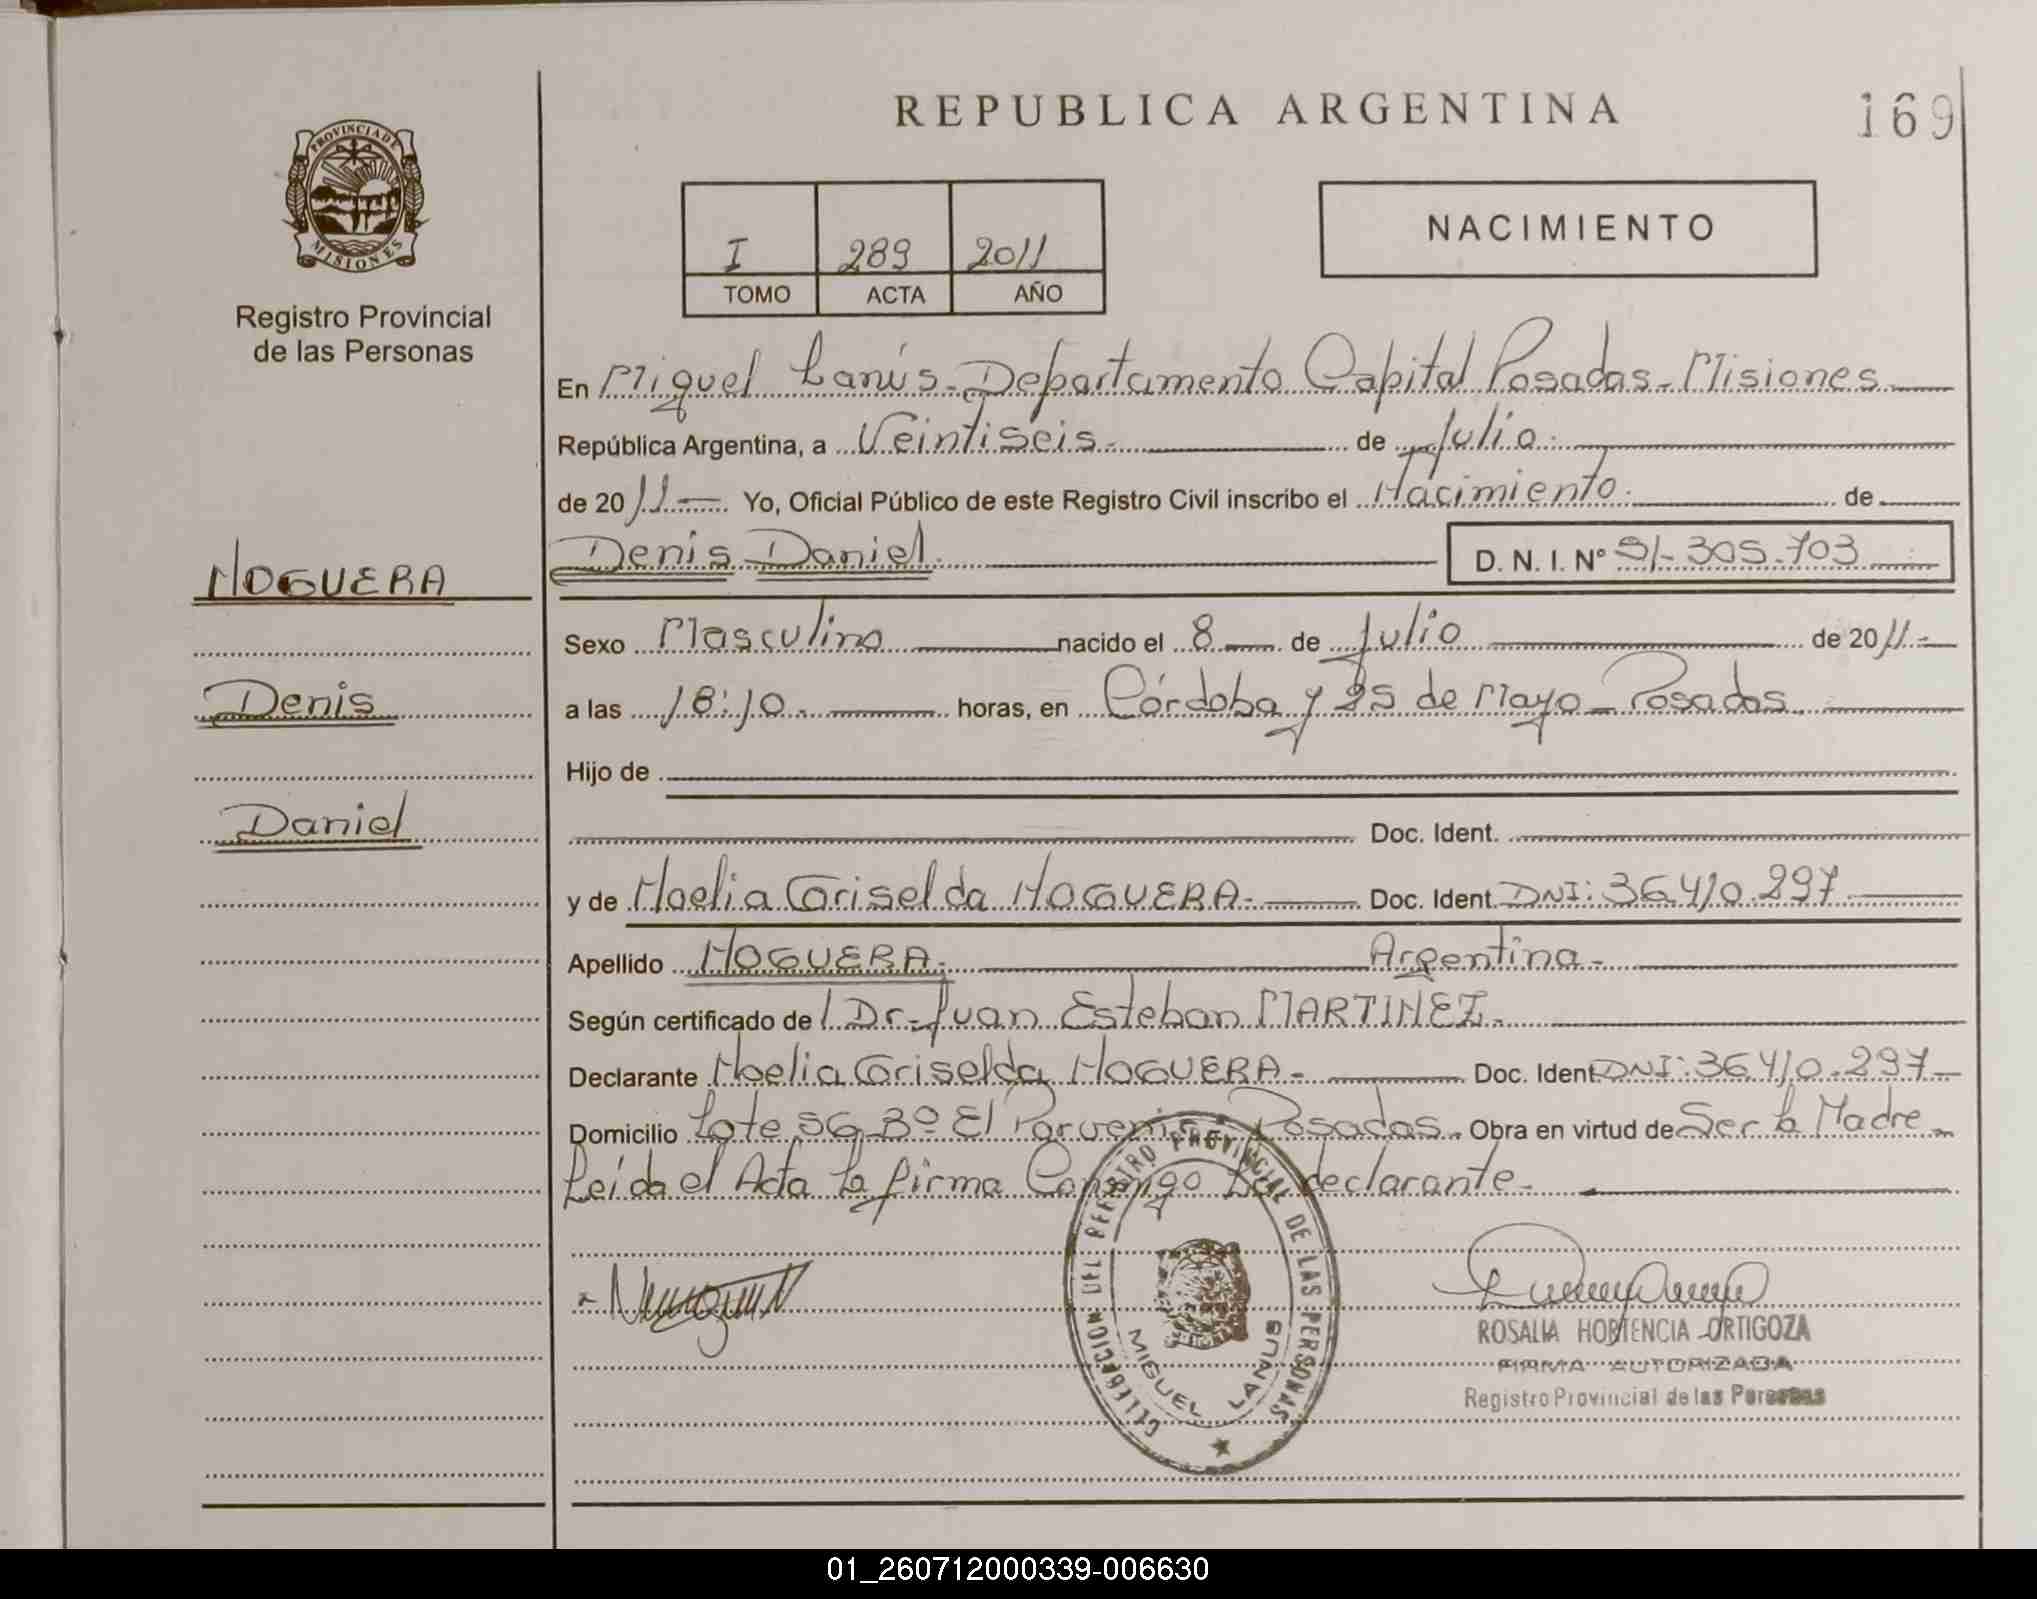 REPUBLICA ARGENTINA
169
PROVINCIA DE
MISIONES
Registro Provincial
de las Personas
I 289 2011
TOMO ACTA AÑO
NACIMIENTO
En Miguel Lanús - Departamento Capital Posadas - Misiones
República Argentina, a Veintiseis.- de Julio.-
de 2011 Yo, Oficial Público de este Registro Civil inscribo el Nacimiento. de
NOGUERA
Denis Daniel. D. N. I. Nº 51-305.703
Sexo Masculino nacido el 8 de Julio de 2011.-
Denis
a las 18:10.- horas, en Córdoba y 25 de Mayo - Posadas.
Hijo de
Daniel
Doc. Ident.
y de Noelia Griselda NOGUERA.- Doc. Ident. DNI: 36.410.297
Apellido NOGUERA.- Argentina.-
Según certificado de Dr. Juan Esteban MARTINEZ.-
Declarante Noelia Griselda NOGUERA.- Doc. Ident. DNI: 36.410.297
Domicilio Lote 56 Bº El Porvenir - Posadas. Obra en virtud de Ser la Madre
Leída el Acta la firma Conmigo La declarante.-
DELEGACION DEL REGISTRO PROVINCIAL DE LAS PERSONAS
MIGUEL LANUS
ROSALIA HORTENCIA ORTIGOZA
FIRMA AUTORIZADA
Registro Provincial de las Personas
01_260712000339-006630